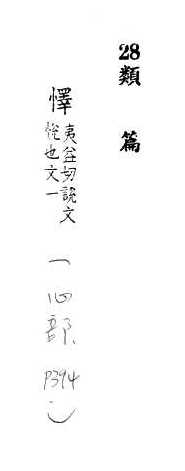 28類篇
懌夷益切說文
悅也文一
(心部, P394)